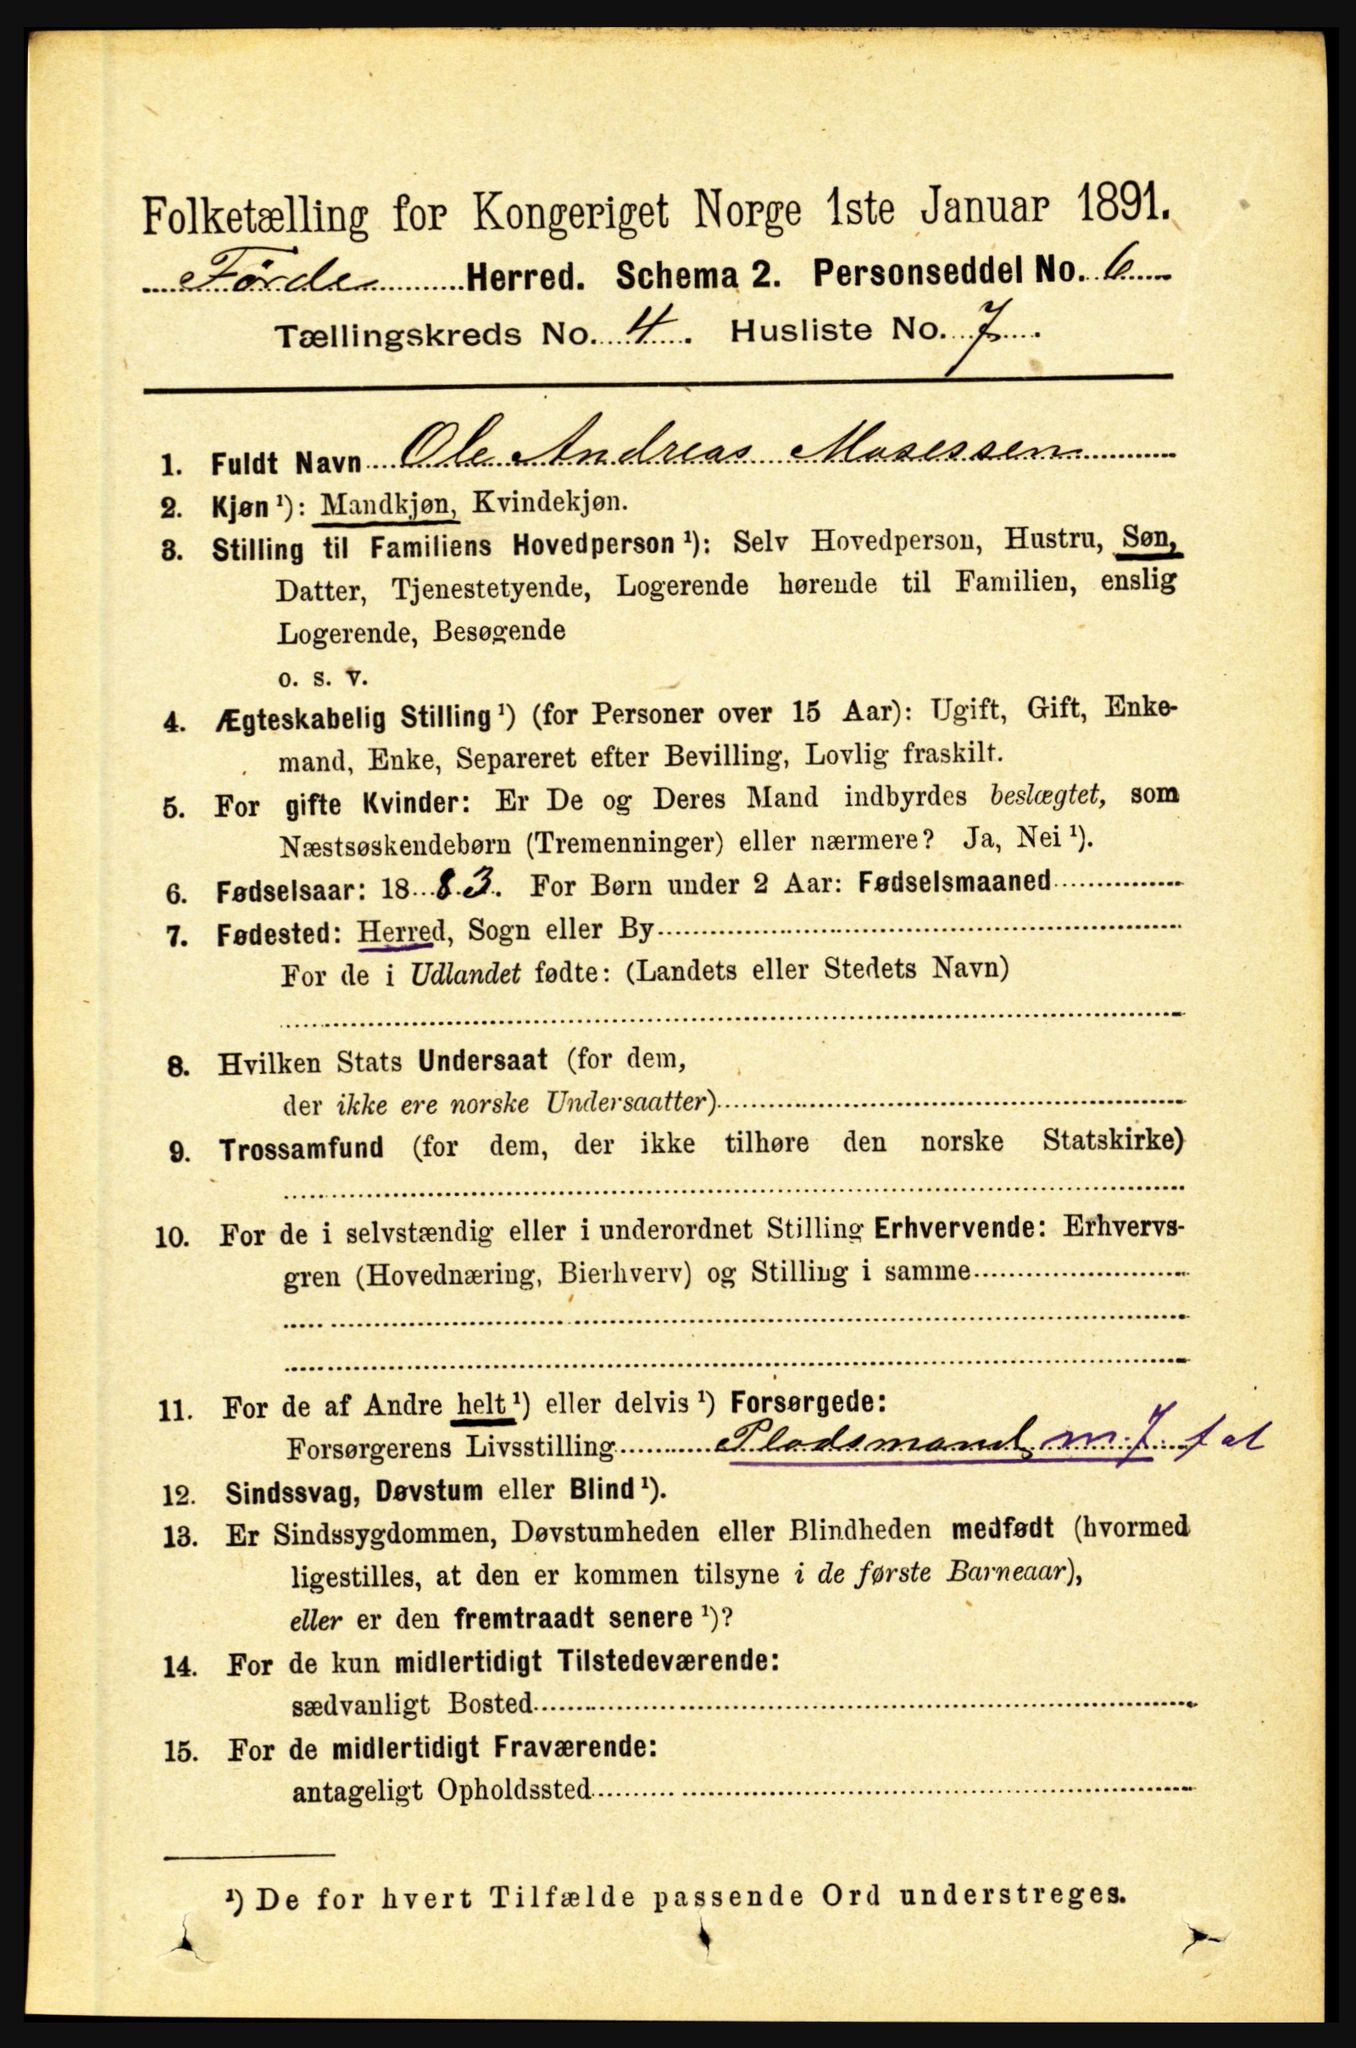 Folketælling for Kongeriget Norge 1ste Januar 1891.
Førde Herred. Schema 2. Personseddel No. 6
Tællingskreds No. 4. Husliste No. 7.
1. Fuldt Navn Ole Andreas Mosessen
2. Kjøn ¹): Mandkjøn, Kvindekjøn.
3. Stilling til Familiens Hovedperson ¹): Selv Hovedperson, Hustru, Søn,
Datter, Tjenestetyende, Logerende hørende til Familien, enslig
Logerende, Besøgende
o. s. v.
4. Ægteskabelig Stilling ¹) (for Personer over 15 Aar): Ugift, Gift, Enke-
mand, Enke, Separeret efter Bevilling, Lovlig fraskilt.
5. For gifte Kvinder: Er De og Deres Mand indbyrdes beslægtet, som
Næstsøskendebørn (Tremenninger) eller nærmere? Ja, Nei ¹).
6. Fødselsaar: 1883. For Børn under 2 Aar: Fødselsmaaned
7. Fødested: Herred, Sogn eller By
For de i Udlandet fødte: (Landets eller Stedets Navn)
8. Hvilken Stats Undersaat (for dem,
der ikke ere norske Undersaatter)
9. Trossamfund (for dem, der ikke tilhøre den norske Statskirke)
10. For de i selvstændig eller i underordnet Stilling Erhvervende: Erhvervs-
gren (Hovednæring, Bierhverv) og Stilling i samme
11. For de af Andre helt ¹) eller delvis ¹) Forsørgede:
Forsørgerens Livsstilling Pladsmand m. J.
12. Sindssvag, Døvstum eller Blind ¹).
13. Er Sindssygdommen, Døvstumheden eller Blindheden medfødt (hvormed
ligestilles, at den er kommen tilsyne i de første Barneaar),
eller er den fremtraadt senere ¹)?
14. For de kun midlertidigt Tilstedeværende:
sædvanligt Bosted
15. For de midlertidigt Fraværende:
antageligt Opholdssted
¹) De for hvert Tilfælde passende Ord understreges.